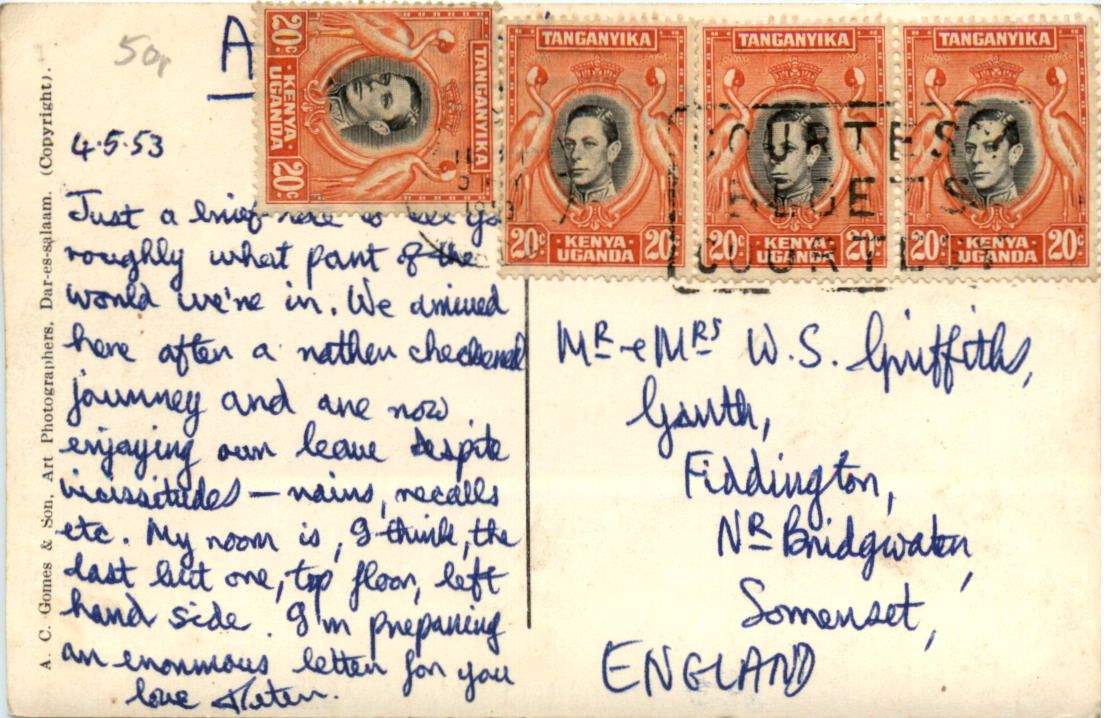 50p
A
TANGANYIKA
20c KENYA UGANDA 20c
TANGANYIKA
20c KENYA UGANDA 20c
TANGANYIKA
20c KENYA UGANDA 20c
TANGANYIKA
20c KENYA UGANDA 20c
COURTESY
COURTESY
A. C. Gomes & Son, Art Photographers, Dar-es-salaam. (Copyright).
4.5.53
Just a brief note to
roughly what part of the
world we're in. We arrived
here after a rather checkered
journey and are now
enjoying our leave despite
vicissitudes — rains, recalls
etc. My room is, I think, the
last but one, top floor, left
hand side. I'm preparing
an enormous letter for you
love Peter.
Mr + Mrs W. S. Griffiths,
Garth,
Fiddington,
Nr Bridgwater,
Somerset,
ENGLAND